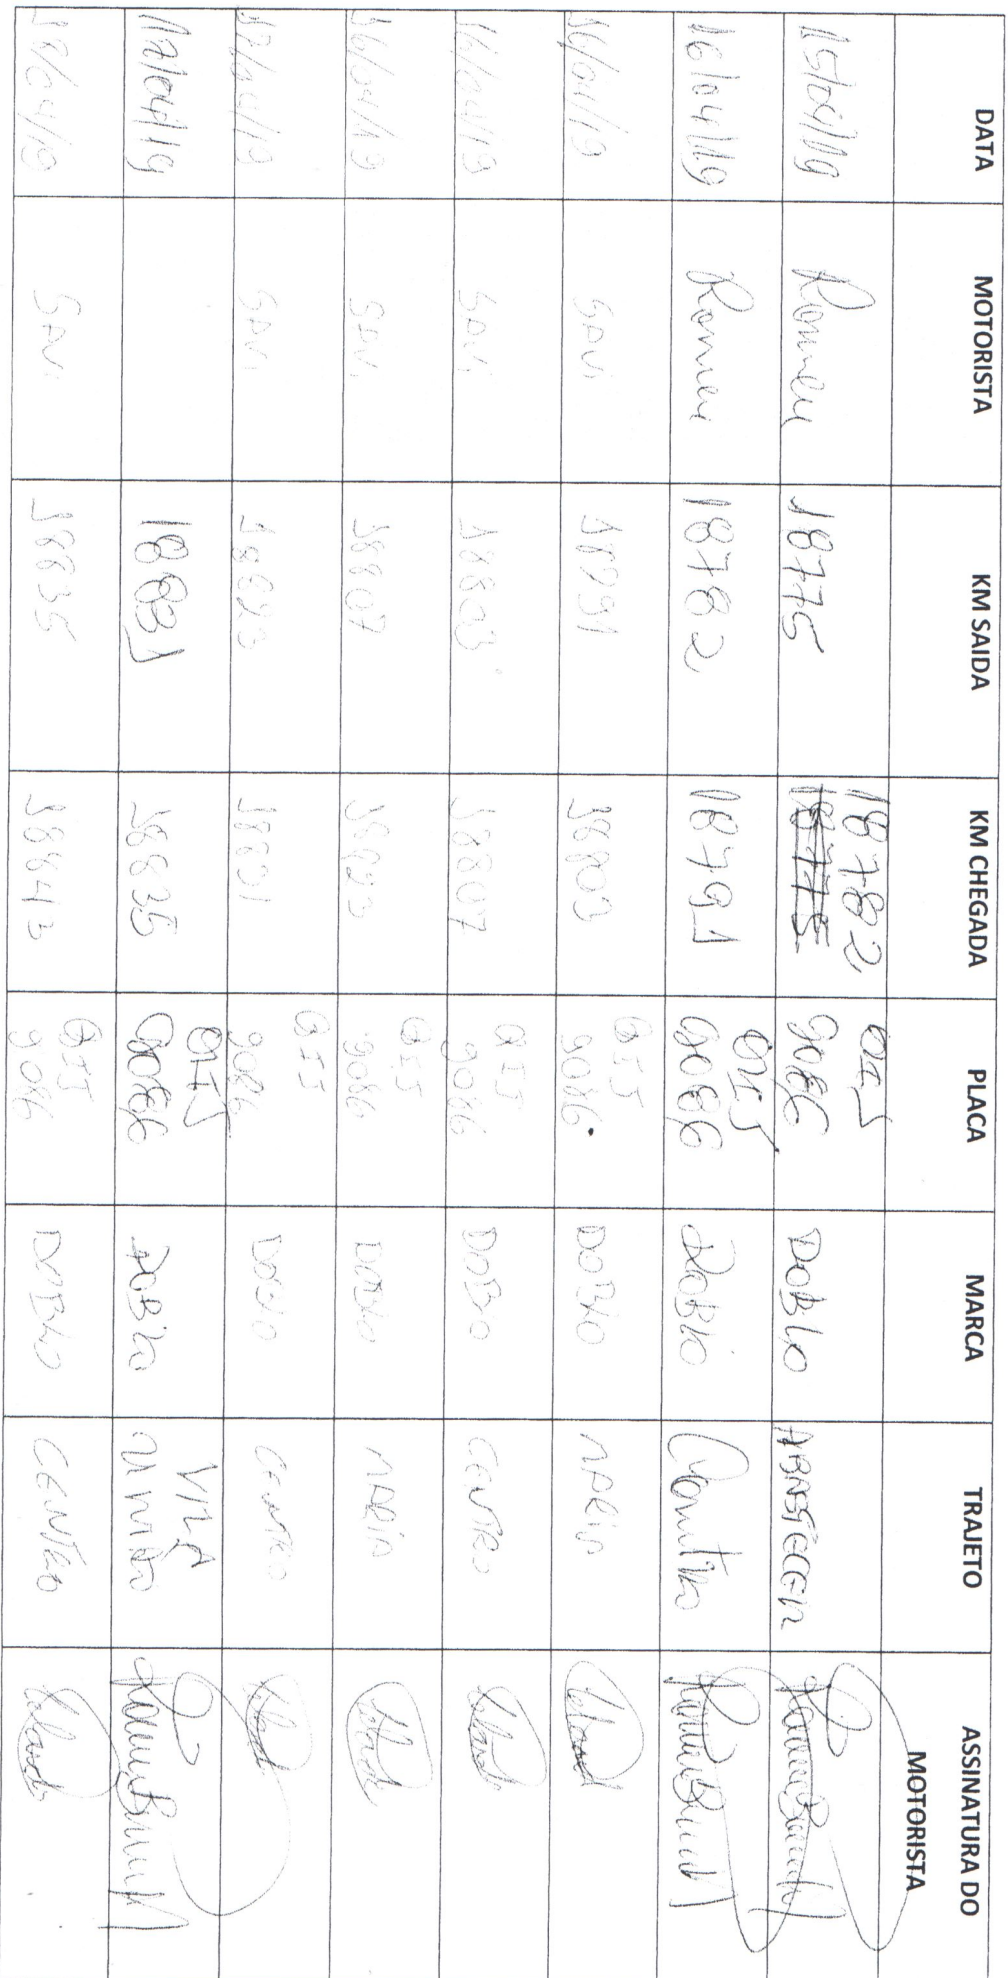 DATA MOTORISTA KM SAIDA KM CHEGADA PLACA MARCA TRAJETO ASSINATURA DO MOTORISTA
15/04/19 Romeu 18775 18782 18775 QIJ 9086 DOBLO ABASTECER
16/04/19 Romeu 18782 18791 QIJ 9086 DOBLO
16/04/19 SAVI 18791 18803 QIJ 9086 DOBLO MARIA
16/04/19 SAVI 18803 18807 QIJ 9086 DOBLO CENTRO
16/04/19 SAVI 18807 18823 QIJ 9086 DOBLO MARIA
17/04/19 SAVI 18823 18831 QIJ 9086 DOBLO CENTRO
17/04/19 18831 18835 QIJ 9086 DOBLO VILA
17/04/19 SAVI 18835 18843 QIJ 9086 DOBLO CENTRO